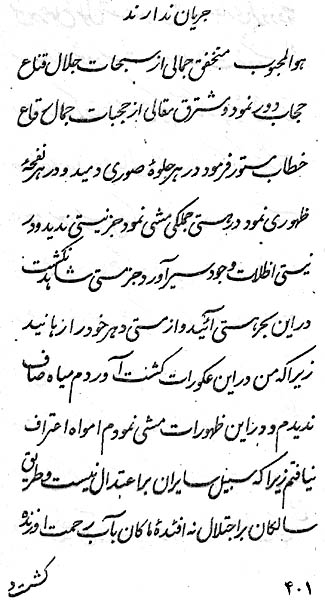 جریان ندارند
هوالمجوب متخفق جمالی از سبحات جلال قناع
حجاب دور نمود و شرق مقالی از حجبات جمال قاع
خطاب مستور فرمود در هر جلوهٔ صوری دمید و در هر نفحهٔ
ظهوری نمود در هستی جملگی مشی نمود جز نیستی ندید و در
نیستی اطلات وجود سیر آورد جز مستی شاهد نگشت
در این بحر هستی آئید و از مستی دهر خود را زهانید
زیرا که من در این عکورات گشت آوردم میاه صاف
ندیدم و در این ظهورات مشی نمودم امواه اعتراف
نیافتم زیرا که سبیل سایران بر اعتدال نیست و طریق
سالکان بر اجتلال نه افئدهٔ ماکان بآب رحمت افزنده
۴۰۱
گشت و